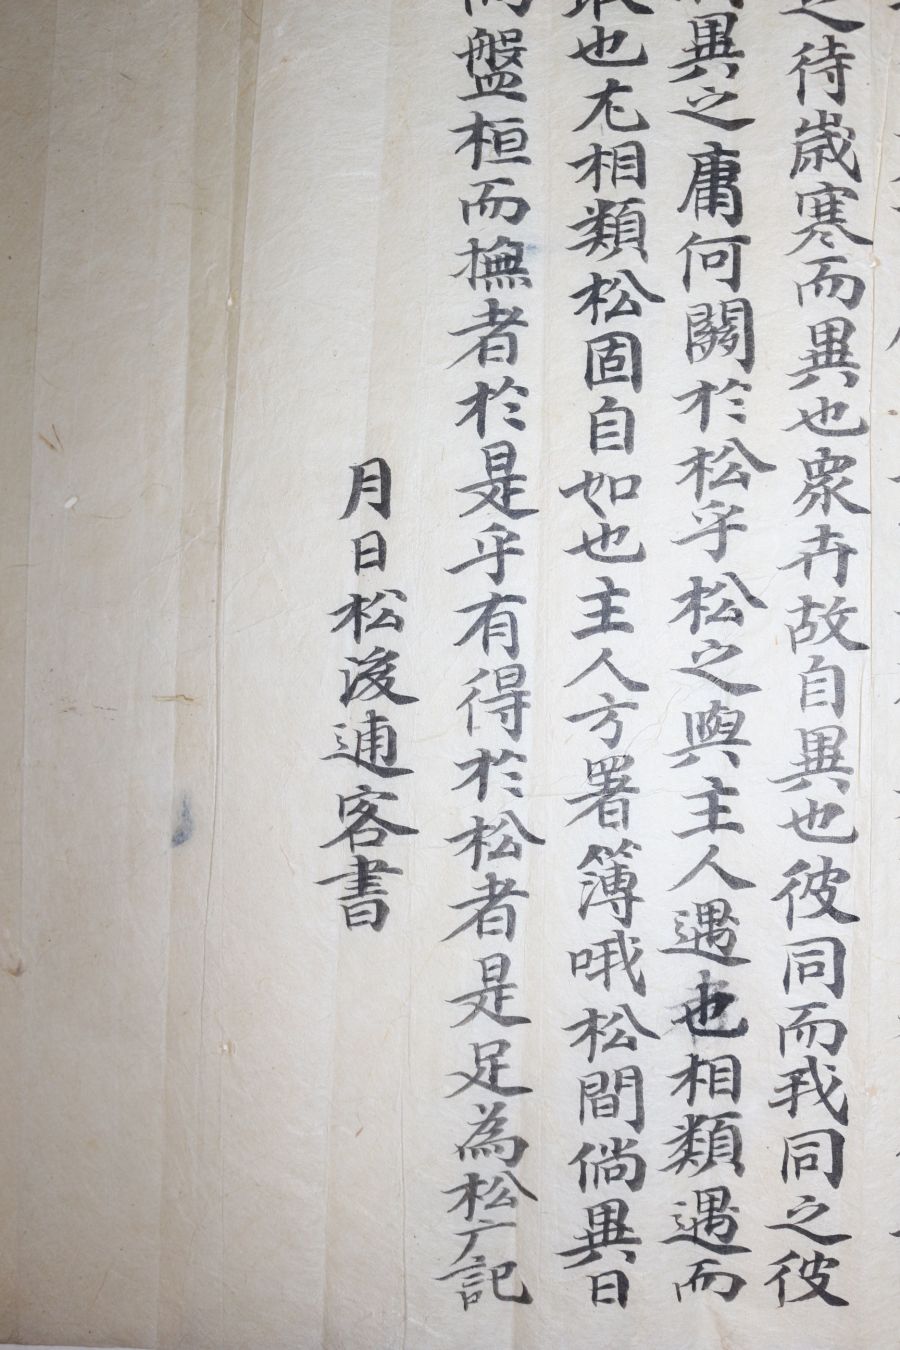 之待歲寒而異也衆卉故自異也彼同而我同之彼
異之庸何關於松乎松之與主人遇也相類遇而
也尤相類松固自如也主人方署簿哦松間倘異日
盤桓而撫者於是乎有得於松者是足為松广記
月日松渡逋客書